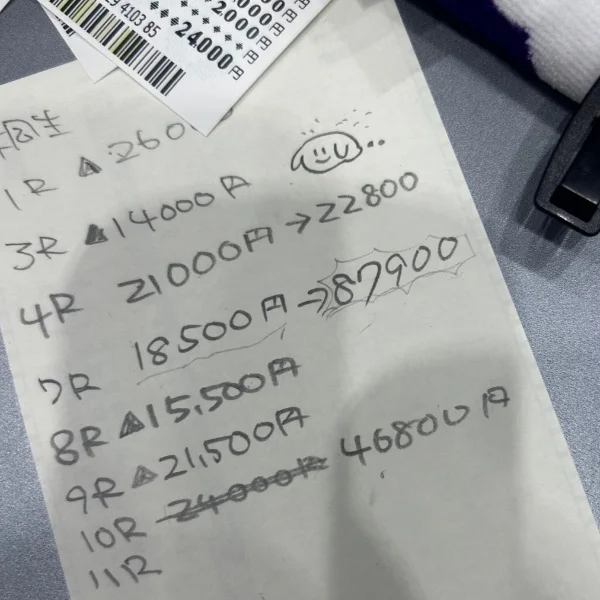 29 4103 85
2,000円
◆◆◆24,000円
1R ▲260
3R ▲14000円
4R 21000円→22800
7R 18500円→87900
8R ▲15,500円
9R ▲21,500円
10R 24000円 46800円
11R